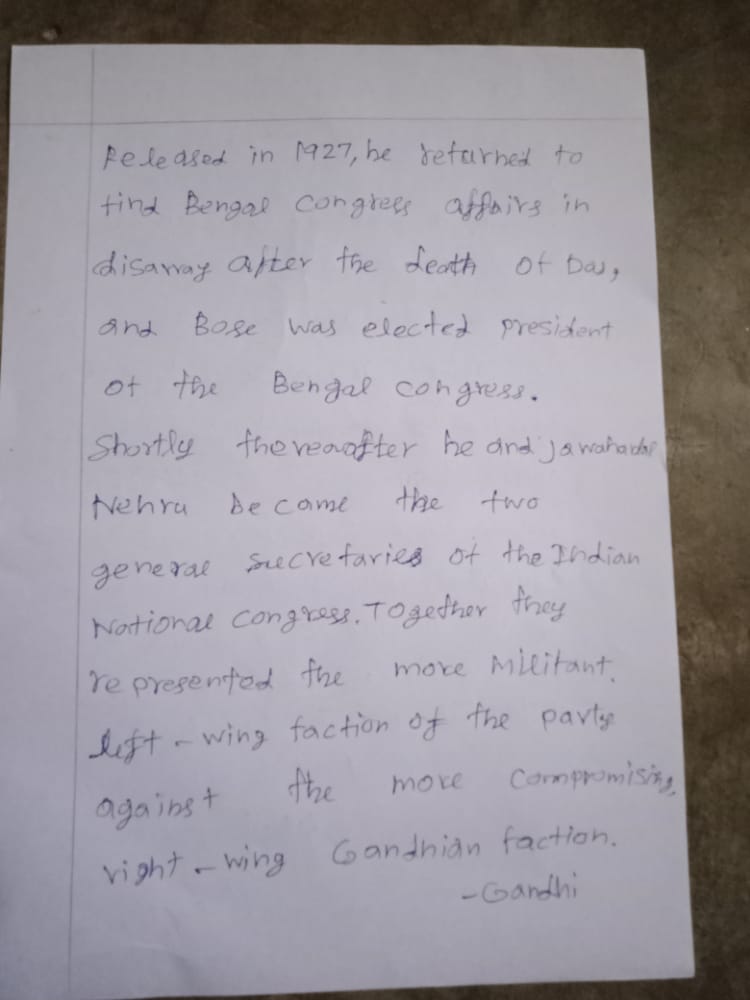 Released in 1927, he returned to
find Bengal Congress affairs in
disarray after the death of Das,
and Bose was elected president
of the Bengal congress.
Shortly thereafter he and Jawaharlal
Nehru became the two
general secretaries of the Indian
National Congress. Together they
represented the more militant,
left-wing faction of the party
against the more compromising,
right-wing Gandhian faction.
-Gandhi